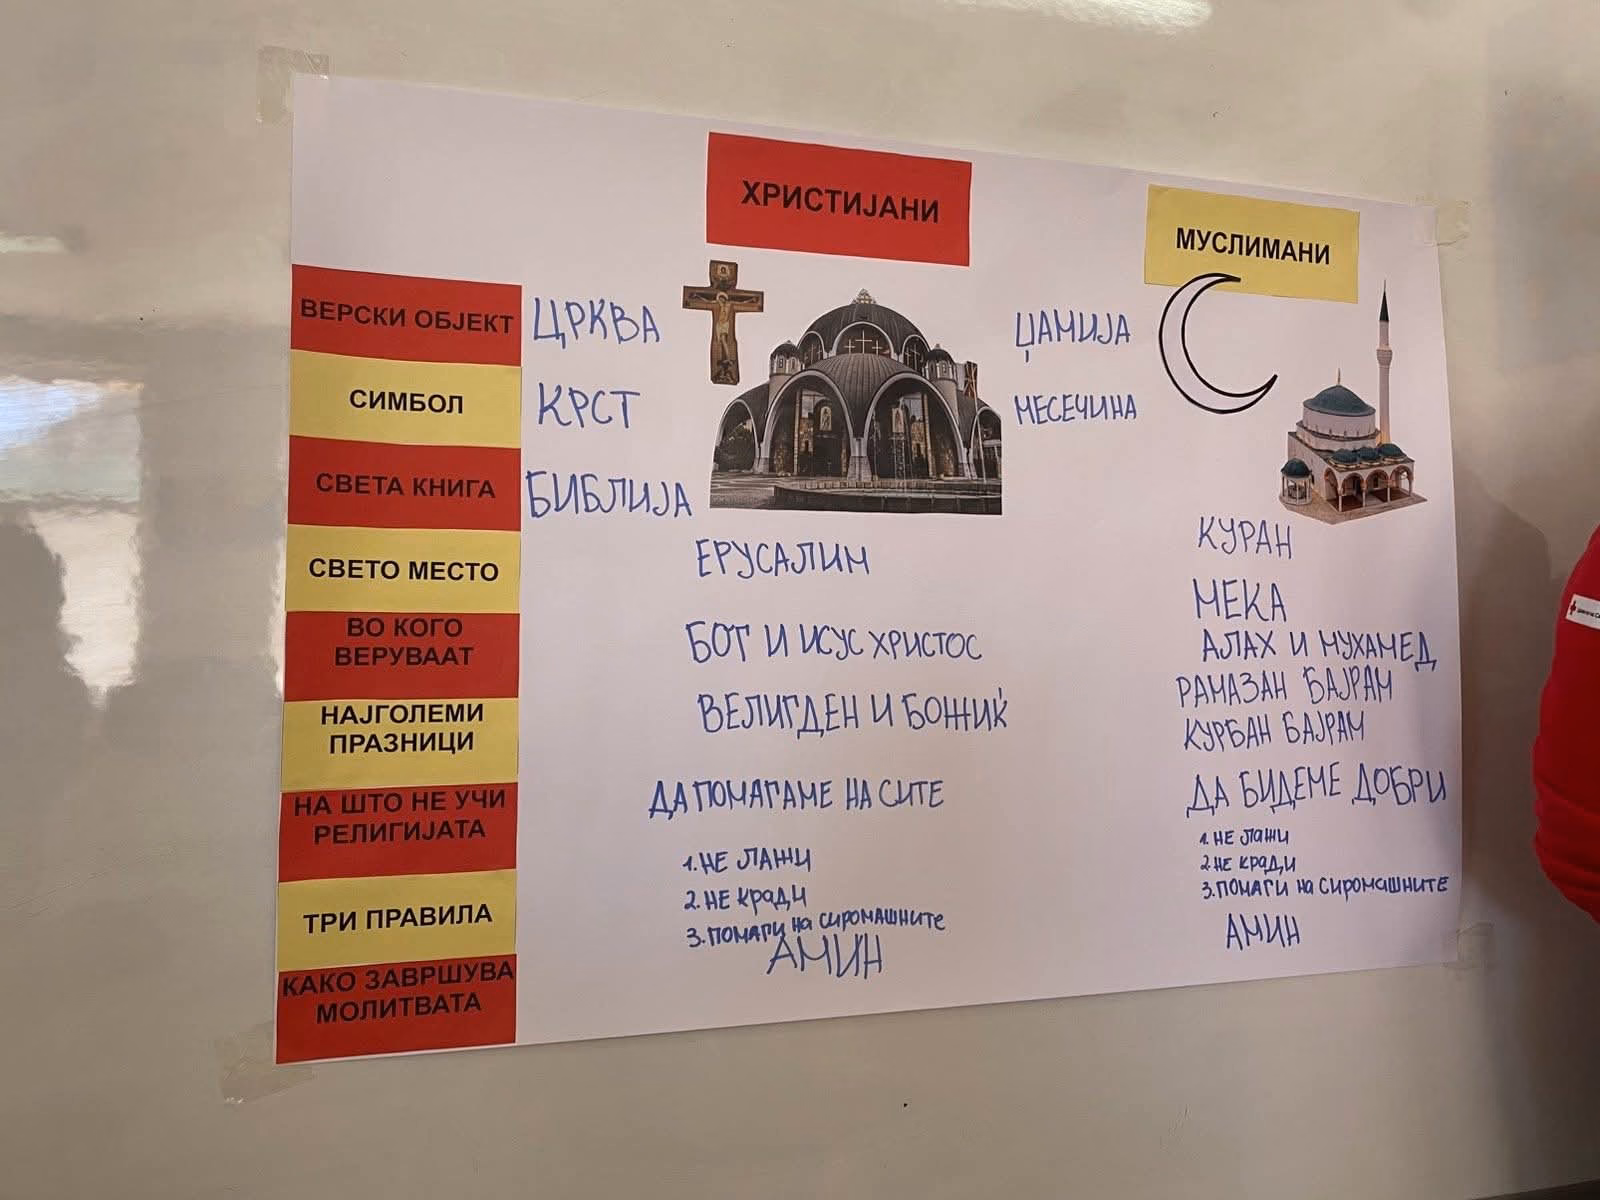 ХРИСТИЈАНИ
МУСЛИМАНИ
ВЕРСКИ ОБЈЕКТ
ЦРКВА
ЏАМИЈА
СИМБОЛ
КРСТ
МЕСЕЧИНА
СВЕТА КНИГА
БИБЛИЈА
КУРАН
СВЕТО МЕСТО
ЕРУСАЛИМ
МЕКА
ВО КОГО
ВЕРУВААТ
БОГ И ИСУС ХРИСТОС
АЛАХ И МУХАМЕД
НАЈГОЛЕМИ
ПРАЗНИЦИ
ВЕЛИГДЕН И БОЖИЌ
РАМАЗАН БАЈРАМ
КУРБАН БАЈРАМ
НА ШТО НЕ УЧИ
РЕЛИГИЈАТА
ДА ПОМАГАМЕ НА СИТЕ
ДА БИДЕМЕ ДОБРИ
ТРИ ПРАВИЛА
1. НЕ ЛАЖИ
2. НЕ КРАДИ
3. ПОМАГИ НА СИРОМАШНИТЕ
1. НЕ ЛАЖИ
2. НЕ КРАДИ
3. ПОМАГИ НА СИРОМАШНИТЕ
КАКО ЗАВРШУВА
МОЛИТВАТА
АМИН
АМИН